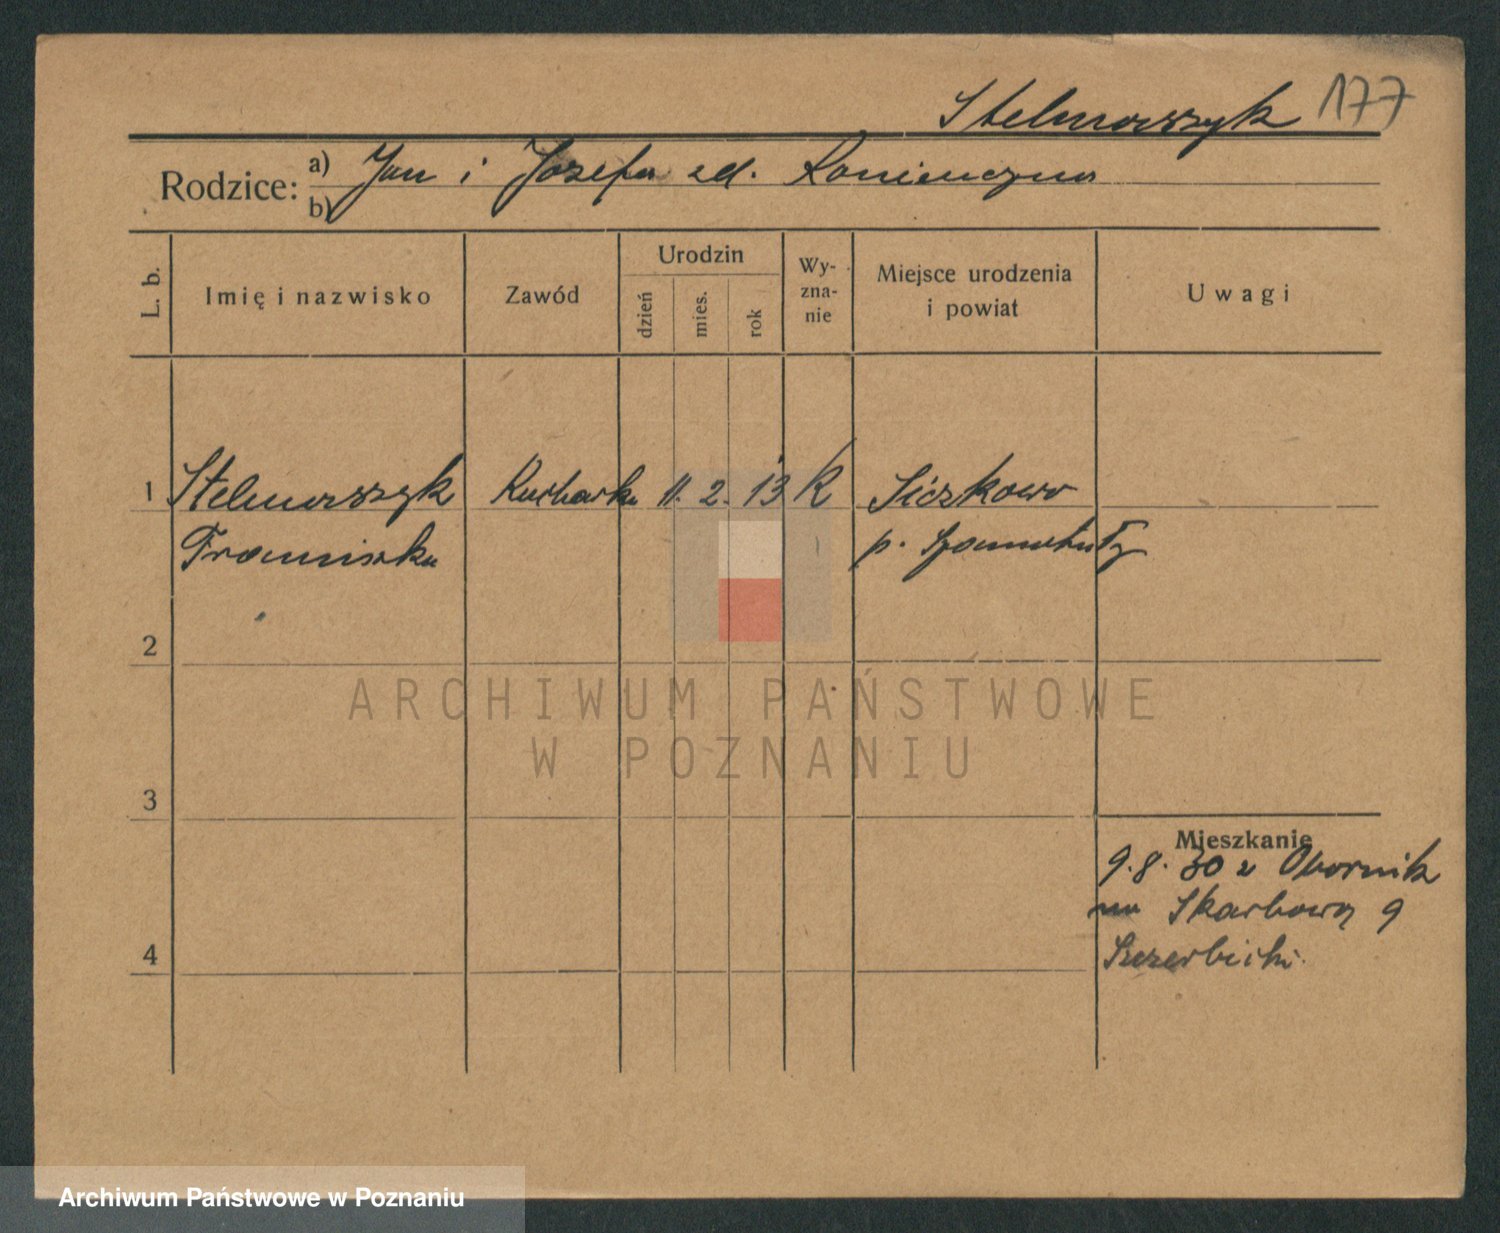 Stelmaszyk 177
Rodzice:
a) Jan i Józefa zd. Konieczna
b)
L. b.
Imię i nazwisko
Zawód
Urodzin
dzień
mies.
rok
Wy-
zna-
nie
Miejsce urodzenia
i powiat
Uwagi
1 Stelmaszyk Kucharka 11. 2. 13 K
Franciszka p. Szamotuły
2
3
4
Mieszkanie
9.8.30 z Obornik
na Skarbową 9
ARCHIWUM PAŃSTWOWE
W POZNANIU
Archiwum Państwowe w Poznaniu